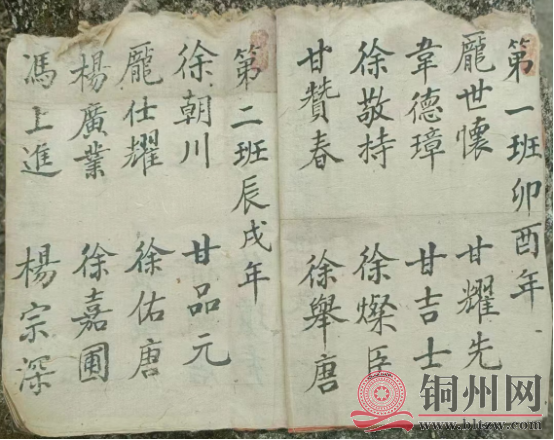 第一班卯酉年
龎世懷 甘耀先
韋德璋 甘吉士
徐敬持 徐燦臣
甘贊春 徐舉唐
第二班辰戌年
徐朝川 甘品元
龎仕耀 徐佑唐
楊廣業 徐嘉圃
馮上進 楊宗深
铜州网
www.bllzw.com